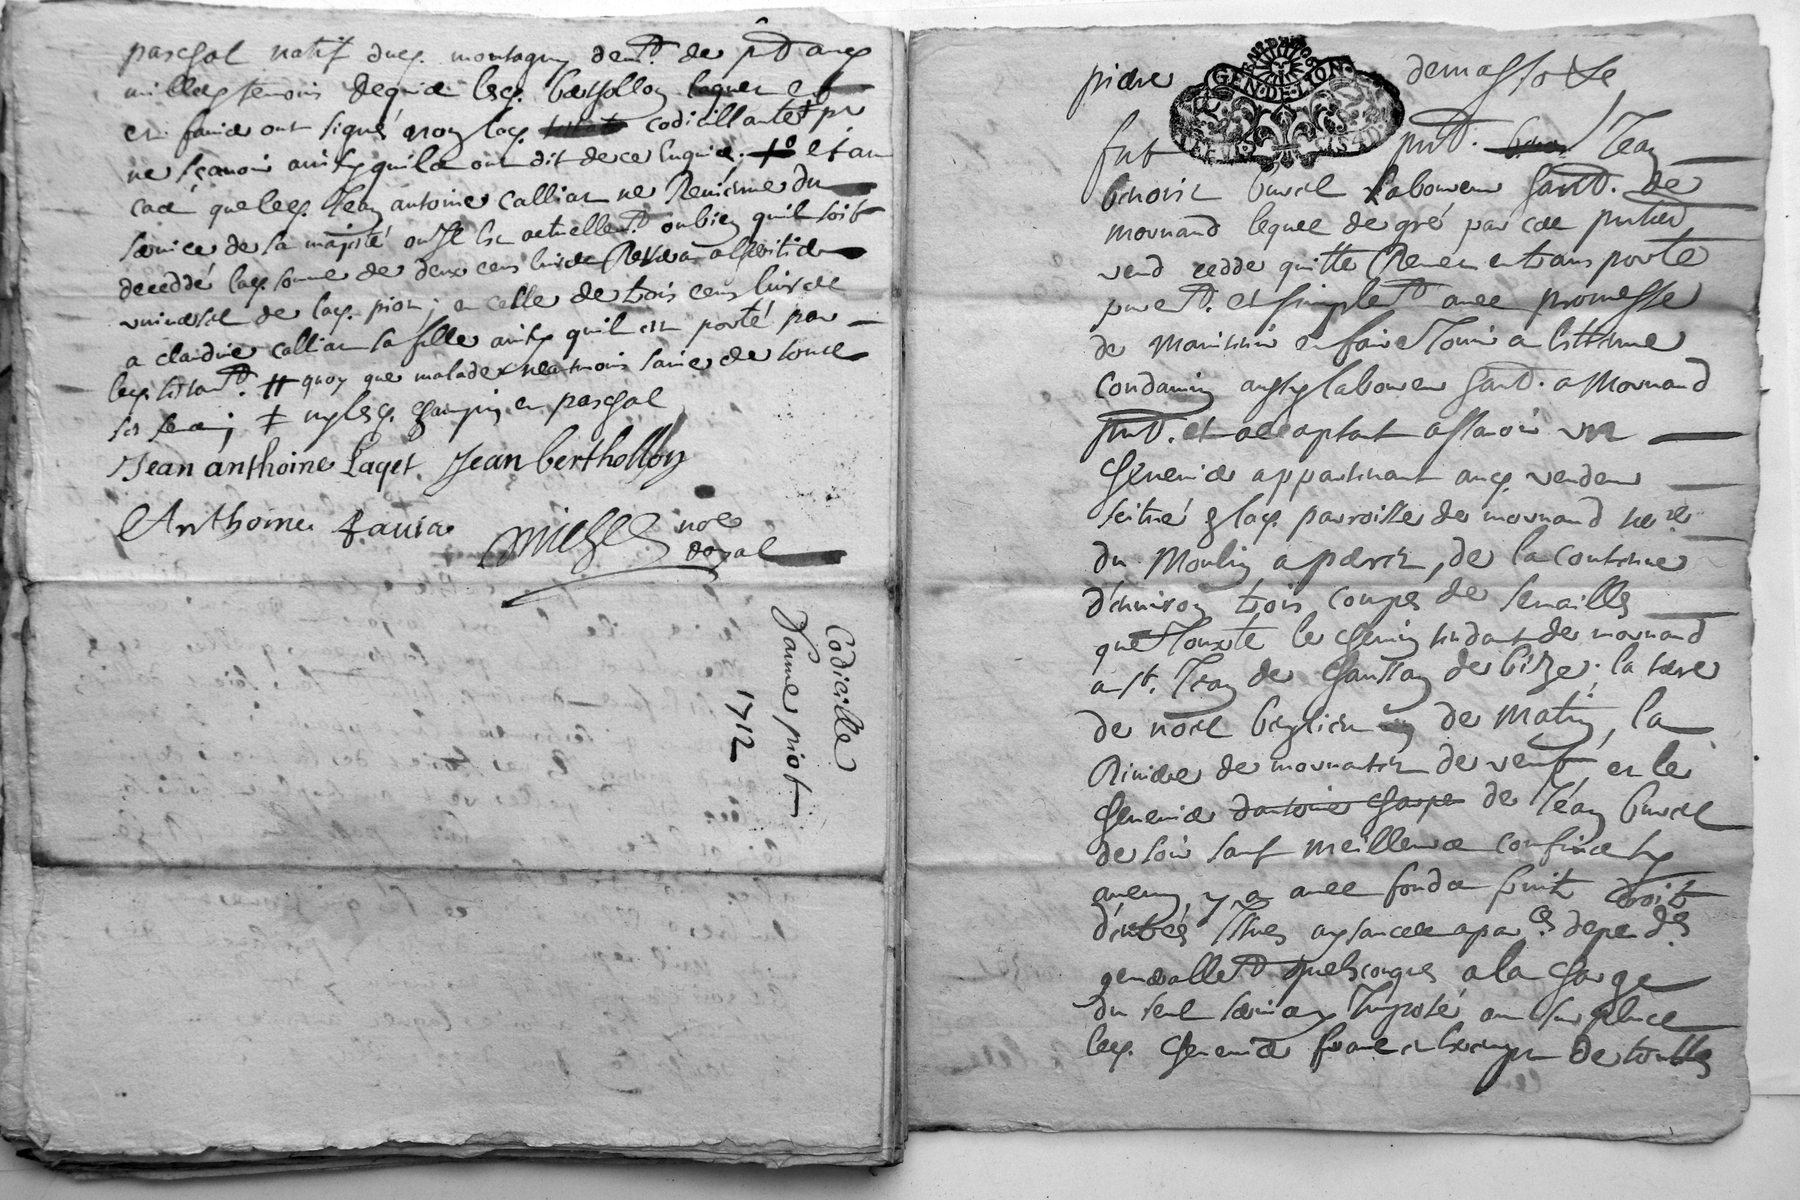 paschal natif dud. montagny dem.t de pnt aux
milles temoins lesd. berthollon laquet et
et faure ont signé non lad. codicillante pr
ne sçavoir ainsy quil a ont dit de ce Enquis. et au
cas que led. Jean antoine calliat ne Revienne du
service de sa majesté ou Il Est actuellem.t ou bien quil soit
decedde lad. somme de deux cens livres Reviendra a lheritier
universel de lad. piot; et celle de trois cens livres
a claudine calliat sa fille ainsy quil est porté par
led. testam.t # quoy que malade neantmoins saine de tous
ses sens; ‡ mylesd. champin et paschal
Jean anthoine Laget. Jean berthollon
Anthoine faura
michel no.e
Royal
Codicille
Janne piot
1712
piere demassotte
GEN·DE·LION
fut pnt. Jean
benoist burel Laboureur hant. de
mornand lequel de gré par ces pntes
vend cedde quitte Remet et transporte
purem.t et simplem.t avec promesse
de maintenir et faire Jouir a Estienne
Condamin aussy laboureur hant. a Mornand
pnt. et acceptant assavoir un
chenevier appartenant aud. vendeur
scitué en lad. parroisse de mornand
du Moulin a paret, de la contenue
d'environ trois coupes de semailles
que Jouxte le chemin tendant de mornand
a st. Jean de chaussan de bize, la terre
de noel de Matin, la
Riviere de mornantet de vent, et le
chenevier dantoine de Jean burel
de soir sauf meilleurs confins sy
aucun y a avec fonds fruit droit
d'entrées Issues aysances apar.ces depend.ces
generallem.t quelconques a la charge
du seul servis Imposé au sur plus
led. cheneviers franc et exempt de touttes